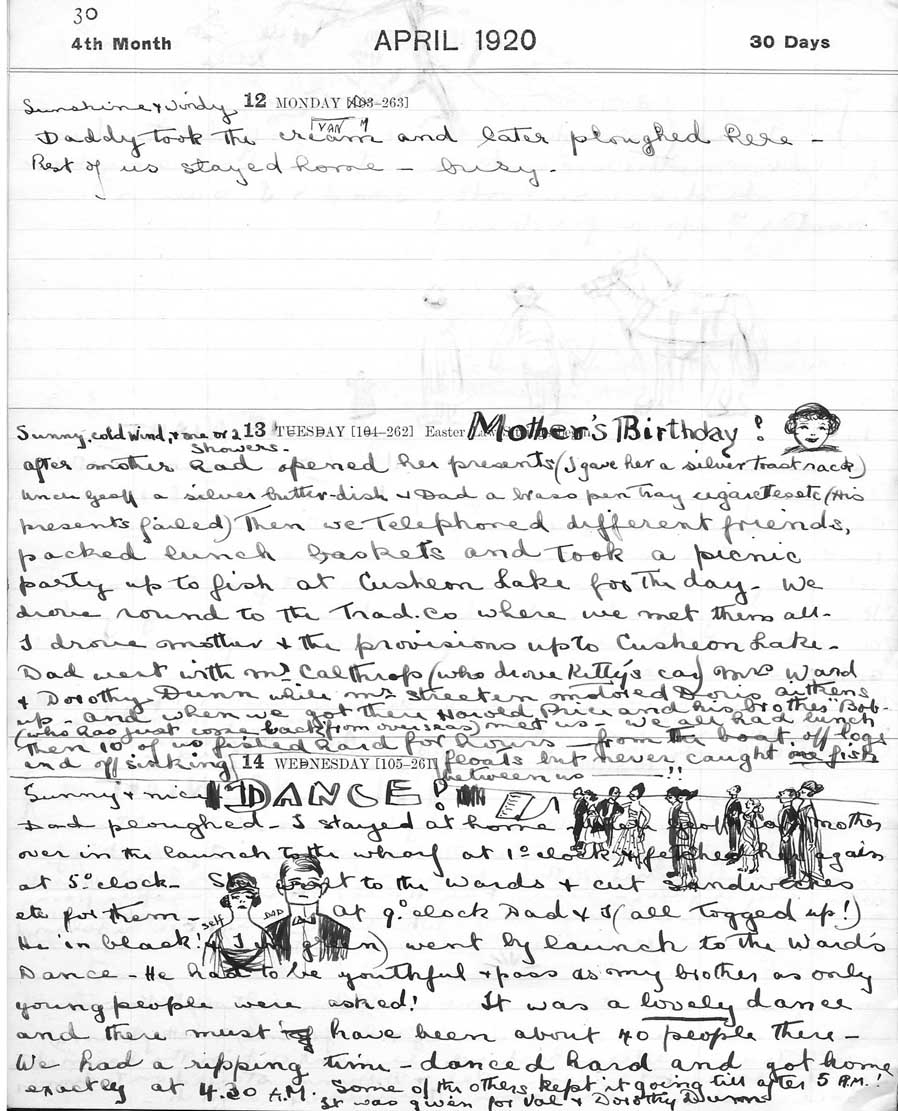 30
4th Month APRIL 1920 30 Days
Sunshine & windy 12 MONDAY [103–263]
VAN
Daddy took the cream and later ploughed here –
Rest of us stayed home – busy.
Sunny, cold wind, & one or 2 13 TUESDAY [104–262] Easter Mother's Birthday!
showers.
after mother had opened her presents (I gave her a silver toast rack)
Uncle Geoff a silver butter-dish & Dad a brass pen tray cigarettes etc (His
presents failed) Then we Telephoned different friends,
packed lunch baskets and took a picnic
party up to fish at Cusheon Lake for the day. We
drove round to the Trad. Co where we met them all.
I drove mother & the provisions up to Cusheon Lake.
Dad went with Mr Calthrop (who drove Kitty's car) Mrs Ward
& Dorothy Dunn while Mr Streeten motored Doris Aitkens
up – and when we got there Harold Price and his brother "Bob"
(who has just come back from overseas) met us – We all had lunch
then 10 of us fished hard for hours – from the boat, off logs
and off sinking 14 WEDNESDAY [105–261] floats but never caught one fish
between us !!
Sunny & nice DANCE!
Dad ploughed – I stayed at home – mother
over in the launch to the wharf at 1 o'clock & fetched her again
at 5 o'clock – She went to the Wards & cut sandwiches
etc for them – At 9 o'clock Dad & I (all togged up!)
SELF DAD
He in black! & I in green) went by launch to the Ward's
Dance – He had to be youthful & pass as my brother as only
young people were asked! It was a lovely dance
and there must have been about 40 people there –
We had a ripping time – danced hard and got home
exactly at 4.30 A.M. Some of the others kept it going till after 5 A.M.!
It was given for Val & Dorothy Dunn